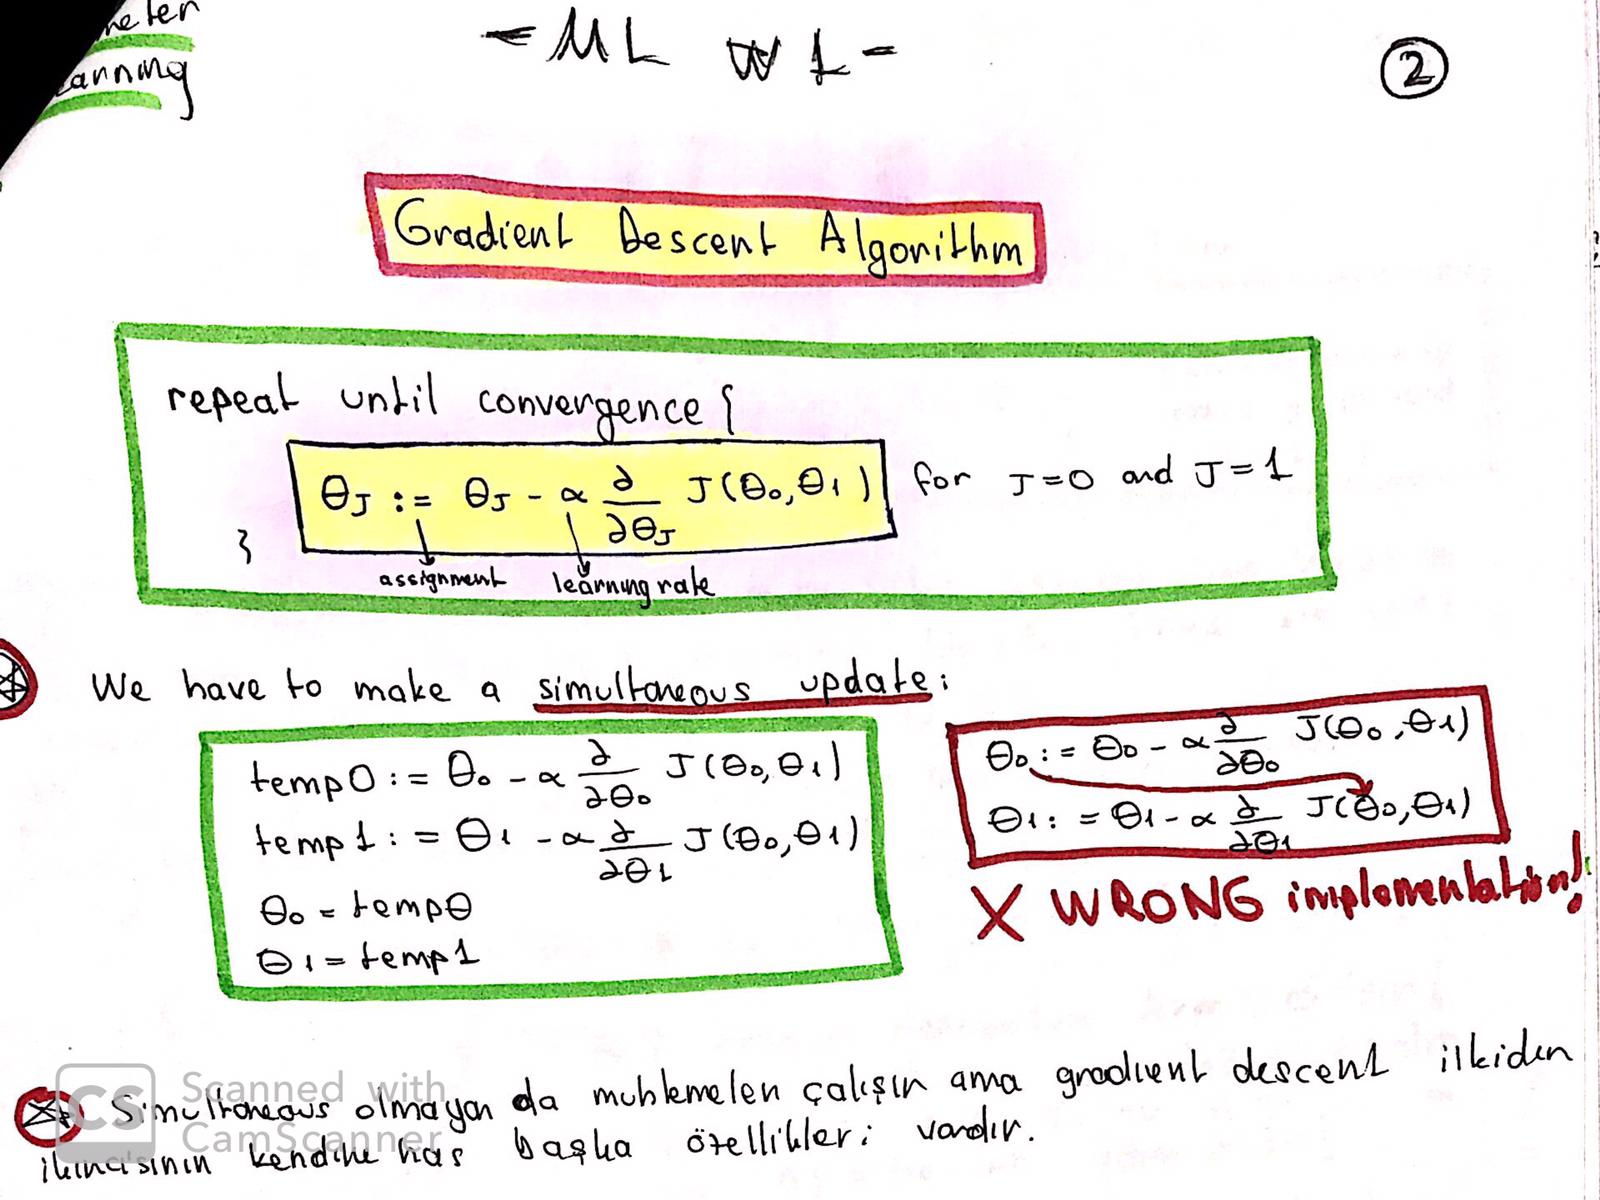 - ML W1 -
2
Gradient Descent Algorithm
repeat until convergence {
θJ := θJ - α ∂/∂θJ J(θ0, θ1) for J=0 and J=1
}
assignment learning rate
We have to make a simultaneous update:
temp0 := θ0 - α ∂/∂θ0 J(θ0, θ1)
temp1 := θ1 - α ∂/∂θ1 J(θ0, θ1)
θ0 = tempθ
θ1 = temp1
θ0 := θ0 - α ∂/∂θ0 J(θ0, θ1)
θ1 := θ1 - α ∂/∂θ1 J(θ0, θ1)
X WRONG implementation!
Simultaneous olmayan da muhlemelen çalışır ama gradient descent ilkiden
ikincisinin kendine has başka özellikleri vardır.
CS Scanned with
CamScanner